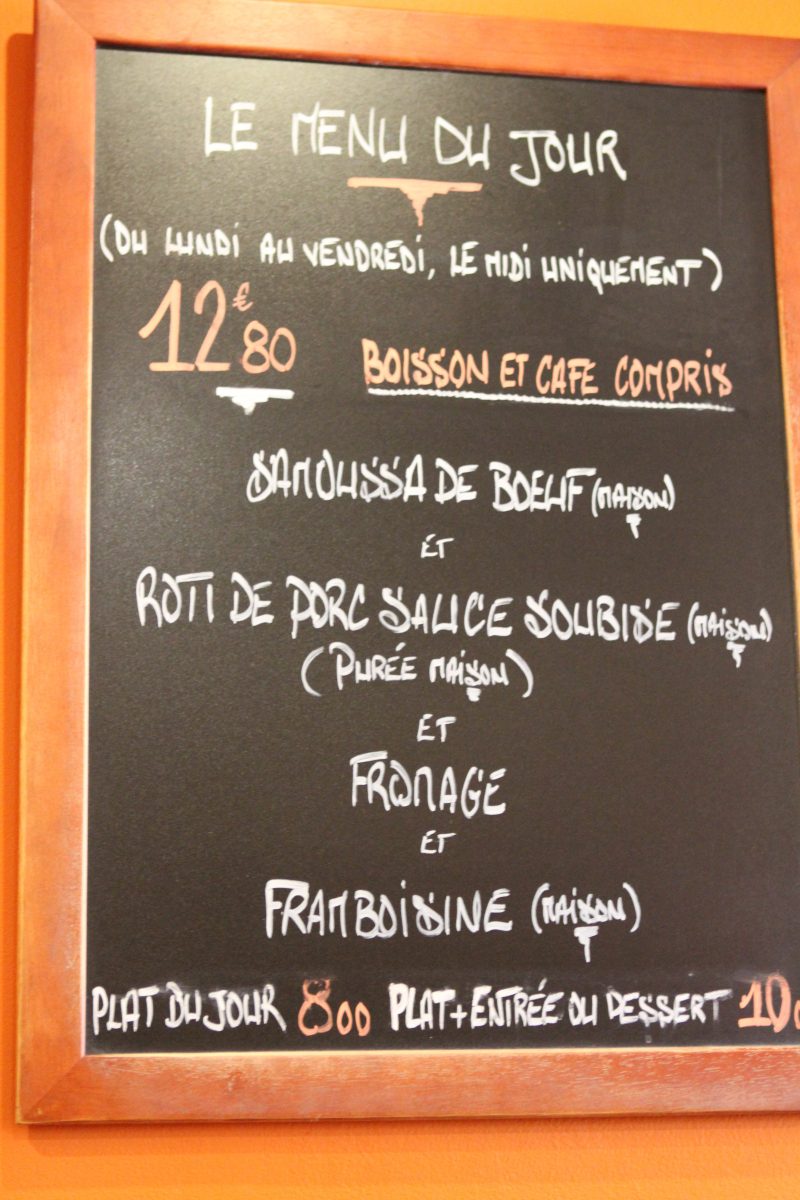 LE MENU DU JOUR
(DU LUNDI AU VENDREDI, LE MIDI UNIQUEMENT)
12€80 BOISSON ET CAFE COMPRIS
SAMOUSSA DE BOEUF (MAISON)
ET
ROTI DE PORC SAUCE SOUBISE (MAISON)
(PURÉE MAISON)
ET
FROMAGE
ET
FRAMBOISINE (MAISON)
PLAT DU JOUR 800 PLAT+ENTRÉE OU DESSERT 10